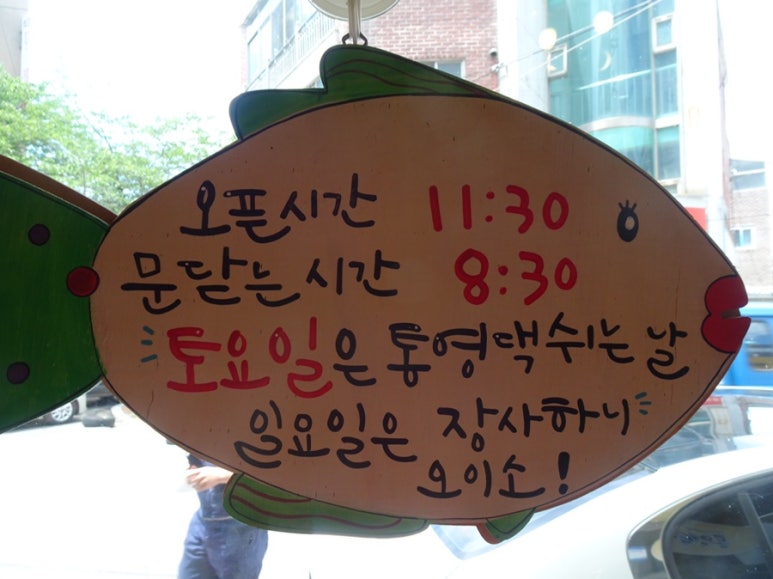 오픈시간 11:30
문닫는시간 8:30
토요일은 통영댁쉬는날
일요일은 장사하니
오이소!